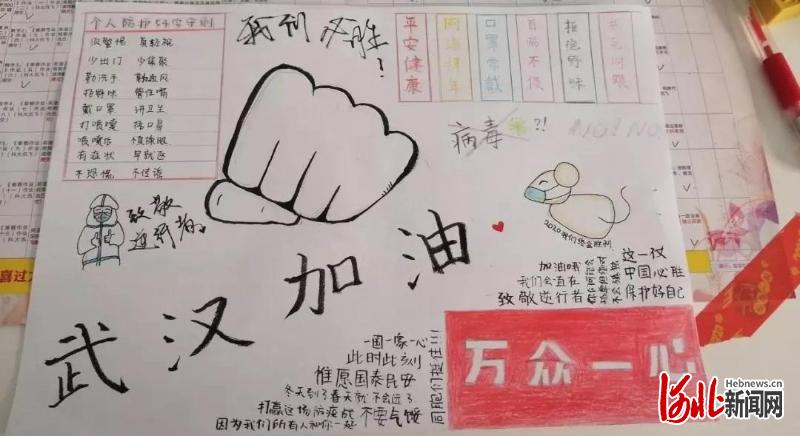 个人防护54字守则
提警惕 莫轻视
少出门 少集聚
勤洗手 勤通风
拒野味 管住嘴
戴口罩 讲卫生
打喷嚏 捂口鼻
喷嚏后 慎揉眼
有症状 早就医
不恐慌 不信谣
我们必胜
平安健康
网络拜年
口罩常戴
百病不侵
拒绝野味
病毒?!
NO!NO
致敬
逆行者。
2020我们终会胜利
武汉加油
加油哦
我们会一直在
致敬逆行者
这一仗
中国必胜
保护好自己
一国一家一心
此时此刻
惟愿国泰民安
冬天到了春天就不会远了
打赢这场防疫战 不要气馁
因为我们所有人和你一起
同胞们挺住!!!
万众一心
河北新闻网
Hebnews.cn